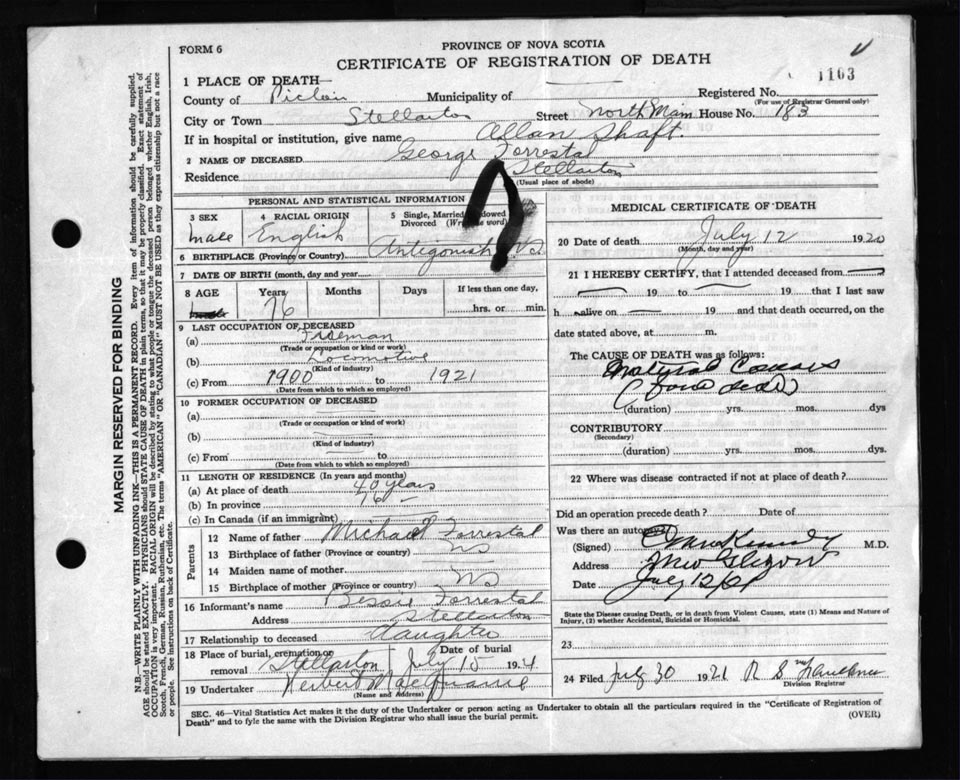 FORM 6
PROVINCE OF NOVA SCOTIA
CERTIFICATE OF REGISTRATION OF DEATH
1163
1 PLACE OF DEATH—
County of Pictou Municipality of Registered No.
(For use of Registrar General only)
City or Town Stellarton Street North Main House No. 183
If in hospital or institution, give name Allan Shaft.
2 NAME OF DECEASED George Forrestal
Residence Stellarton
(Usual place of abode)
PERSONAL AND STATISTICAL INFORMATION
3 SEX
male
4 RACIAL ORIGIN
English
5 Single, Married, Widowed
Divorced (Write the word)
6 BIRTHPLACE (Province or Country) Antigonish N.S.
7 DATE OF BIRTH (month, day and year)
8 AGE Years Months Days If less than one day,
76 hrs. or min.
9 LAST OCCUPATION OF DECEASED
(a) Fireman
(Trade or occupation or kind of work)
(b) Locomotive
(Kind of industry)
(c) From 1900 to 1921
(Date from which to which so employed)
10 FORMER OCCUPATION OF DECEASED
(a)
(Trade or occupation or kind of work)
(b)
(Kind of industry)
(c) From to
(Date from which to which so employed)
11 LENGTH OF RESIDENCE (In years and months)
(a) At place of death 40 years
(b) In province 76 —
(c) In Canada (if an immigrant)
Parents
12 Name of father Michael Forrestal
13 Birthplace of father (Province or country) NS
14 Maiden name of mother
15 Birthplace of mother (Province or country) NS
16 Informant's name Bessie Forrestal
Address Stellarton
17 Relationship to deceased daughter
18 Place of burial, cremation or removal Stellarton Date of burial July 15 194
19 Undertaker Herbert MacQuarrie
(Name and Address)
MEDICAL CERTIFICATE OF DEATH
20 Date of death July 12 1920
(Month, day and year)
21 I HEREBY CERTIFY, that I attended deceased from
19 to 19 that I last saw
h alive on 19 and that death occurred, on the
date stated above, at m.
The CAUSE OF DEATH was as follows:
Natural Causes
(found dead)
(duration) yrs. mos. dys
CONTRIBUTORY
(Secondary)
(duration) yrs. mos. dys
22 Where was disease contracted if not at place of death?
Did an operation precede death? Date of
Was there an autopsy
(Signed) Kennedy M.D.
Address New Glasgow
Date July 12/21
State the Disease causing Death, or in death from Violent Causes, state (1) Means and Nature of
Injury, (2) whether Accidental, Suicidal or Homicidal.
23
24 Filed July 30 1921 R S Faulkner
Division Registrar
SEC. 46—Vital Statistics Act makes it the duty of the Undertaker or person acting as Undertaker to obtain all the particulars required in the "Certificate of Registration of
Death" and to fyle the same with the Division Registrar who shall issue the burial permit.
(OVER)
MARGIN RESERVED FOR BINDING
N.B.—WRITE PLAINLY WITH UNFADING INK—THIS IS A PERMANENT RECORD. Every item of information should be carefully supplied.
AGE should be stated EXACTLY. PHYSICIANS should STATE CAUSE OF DEATH in plain terms, so that it may be properly classified. Exact statement of
OCCUPATION is very important. RACIAL ORIGIN will be described by stating to what people or tongue the deceased person belonged whether English, Irish,
Scotch, French, German, Russian, Ruthenian, etc. The terms "AMERICAN" OR "CANADIAN" MUST NOT BE USED as they express citizenship but not a race
or people. See instructions on back of Certificate.